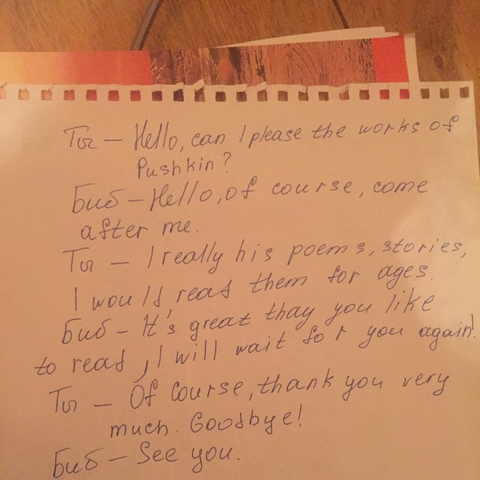 Ты – Hello, can I please the works of
Pushkin?
Биб – Hello, of course, come
after me.
Ты – I really his poems, stories,
I would read them for ages.
Биб – It's great thay you like
to read, I will wait for you again!
Ты – Of course, thank you very
much. Goodbye!
Биб – See you.